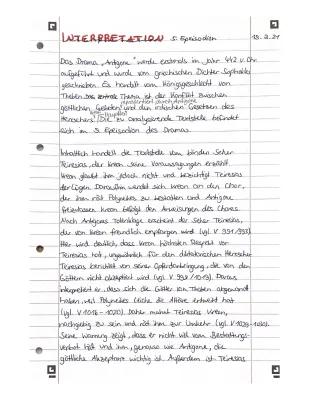 INTERPRETATION 5. Epeisodion 18.3.21
Das Drama „Antigone" wurde erstmals im Jahr 442 v. Chr
aufgeführt und wurde vom griechischen Dichter Sophokles
geschrieben. Es handelt vom Königsgeschlecht von
Theben. Das zentrale Thema ist der Konflikt zwischen
repräsentiert durch Antigone
göttlichen Geboten und den irdischen Gesetzen des
Herrschers. Die zu analysierende Textstelle befindet
sich im 5. Epeisodion des Dramas.
Inhaltlich handelt die Textstelle vom blinden Seher
Teiresias, der Kreon seine Voraussagungen erzählt.
Kreon glaubt ihm jedoch nicht und bezichtigt Teiresias
der Lügen. Daraufhin wendet sich Kreon an den Chor,
der ihm rät Polyneikes zu bestatten und Antigone
freizulassen. Kreon befolgt den Anweisungen des Chores.
Nach Antigones Totenklage erscheint der Seher Teiresias,
der von Kreon freundlich empfangen wird (vgl. V 991/993).
Hier wird deutlich, dass Kreon höchsten Respekt vor
Teiresias hat, ungewöhnlich für den diktatorischen Herrscher.
Teiresias berichtet von seiner Opferdarbringung, die von den
Göttern nicht akzeptiert wird (vgl. V 998/1013). Daraus
interpretiert er, dass sich die Götter von Theben abgewandt
haben, weil Polyneikes Leiche die Altäre entweiht hat
(vgl. V 1016 - 1020). Daher mahnt Teiresias Kreon,
nachgiebig zu sein und rät ihm zur Umkehr (vgl. V
Seine Warnung zeigt, dass er nicht viel vom Bestattungs-
verbot hält und ihm, genauso wie Antigone, die
göttliche Akzeptanz wichtig ist. Außerdem ist Teiresias